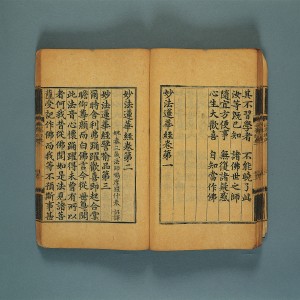 其不習學者　不能曉了此
汝等既已知　諸佛世之師
隨宜方便事　無復諸疑惑
心生大歡喜　自知當作佛
妙法蓮華經卷第一
妙法蓮華經卷第二
妙法蓮華經譬喻品第三
爾時舍利弗踊躍歡喜即起合掌
瞻仰尊顏而白佛言今從世尊聞
此法音心懷踊躍得未曾有所以
者何我昔從佛聞如是法見諸菩
薩受記作佛而我等不預斯事甚